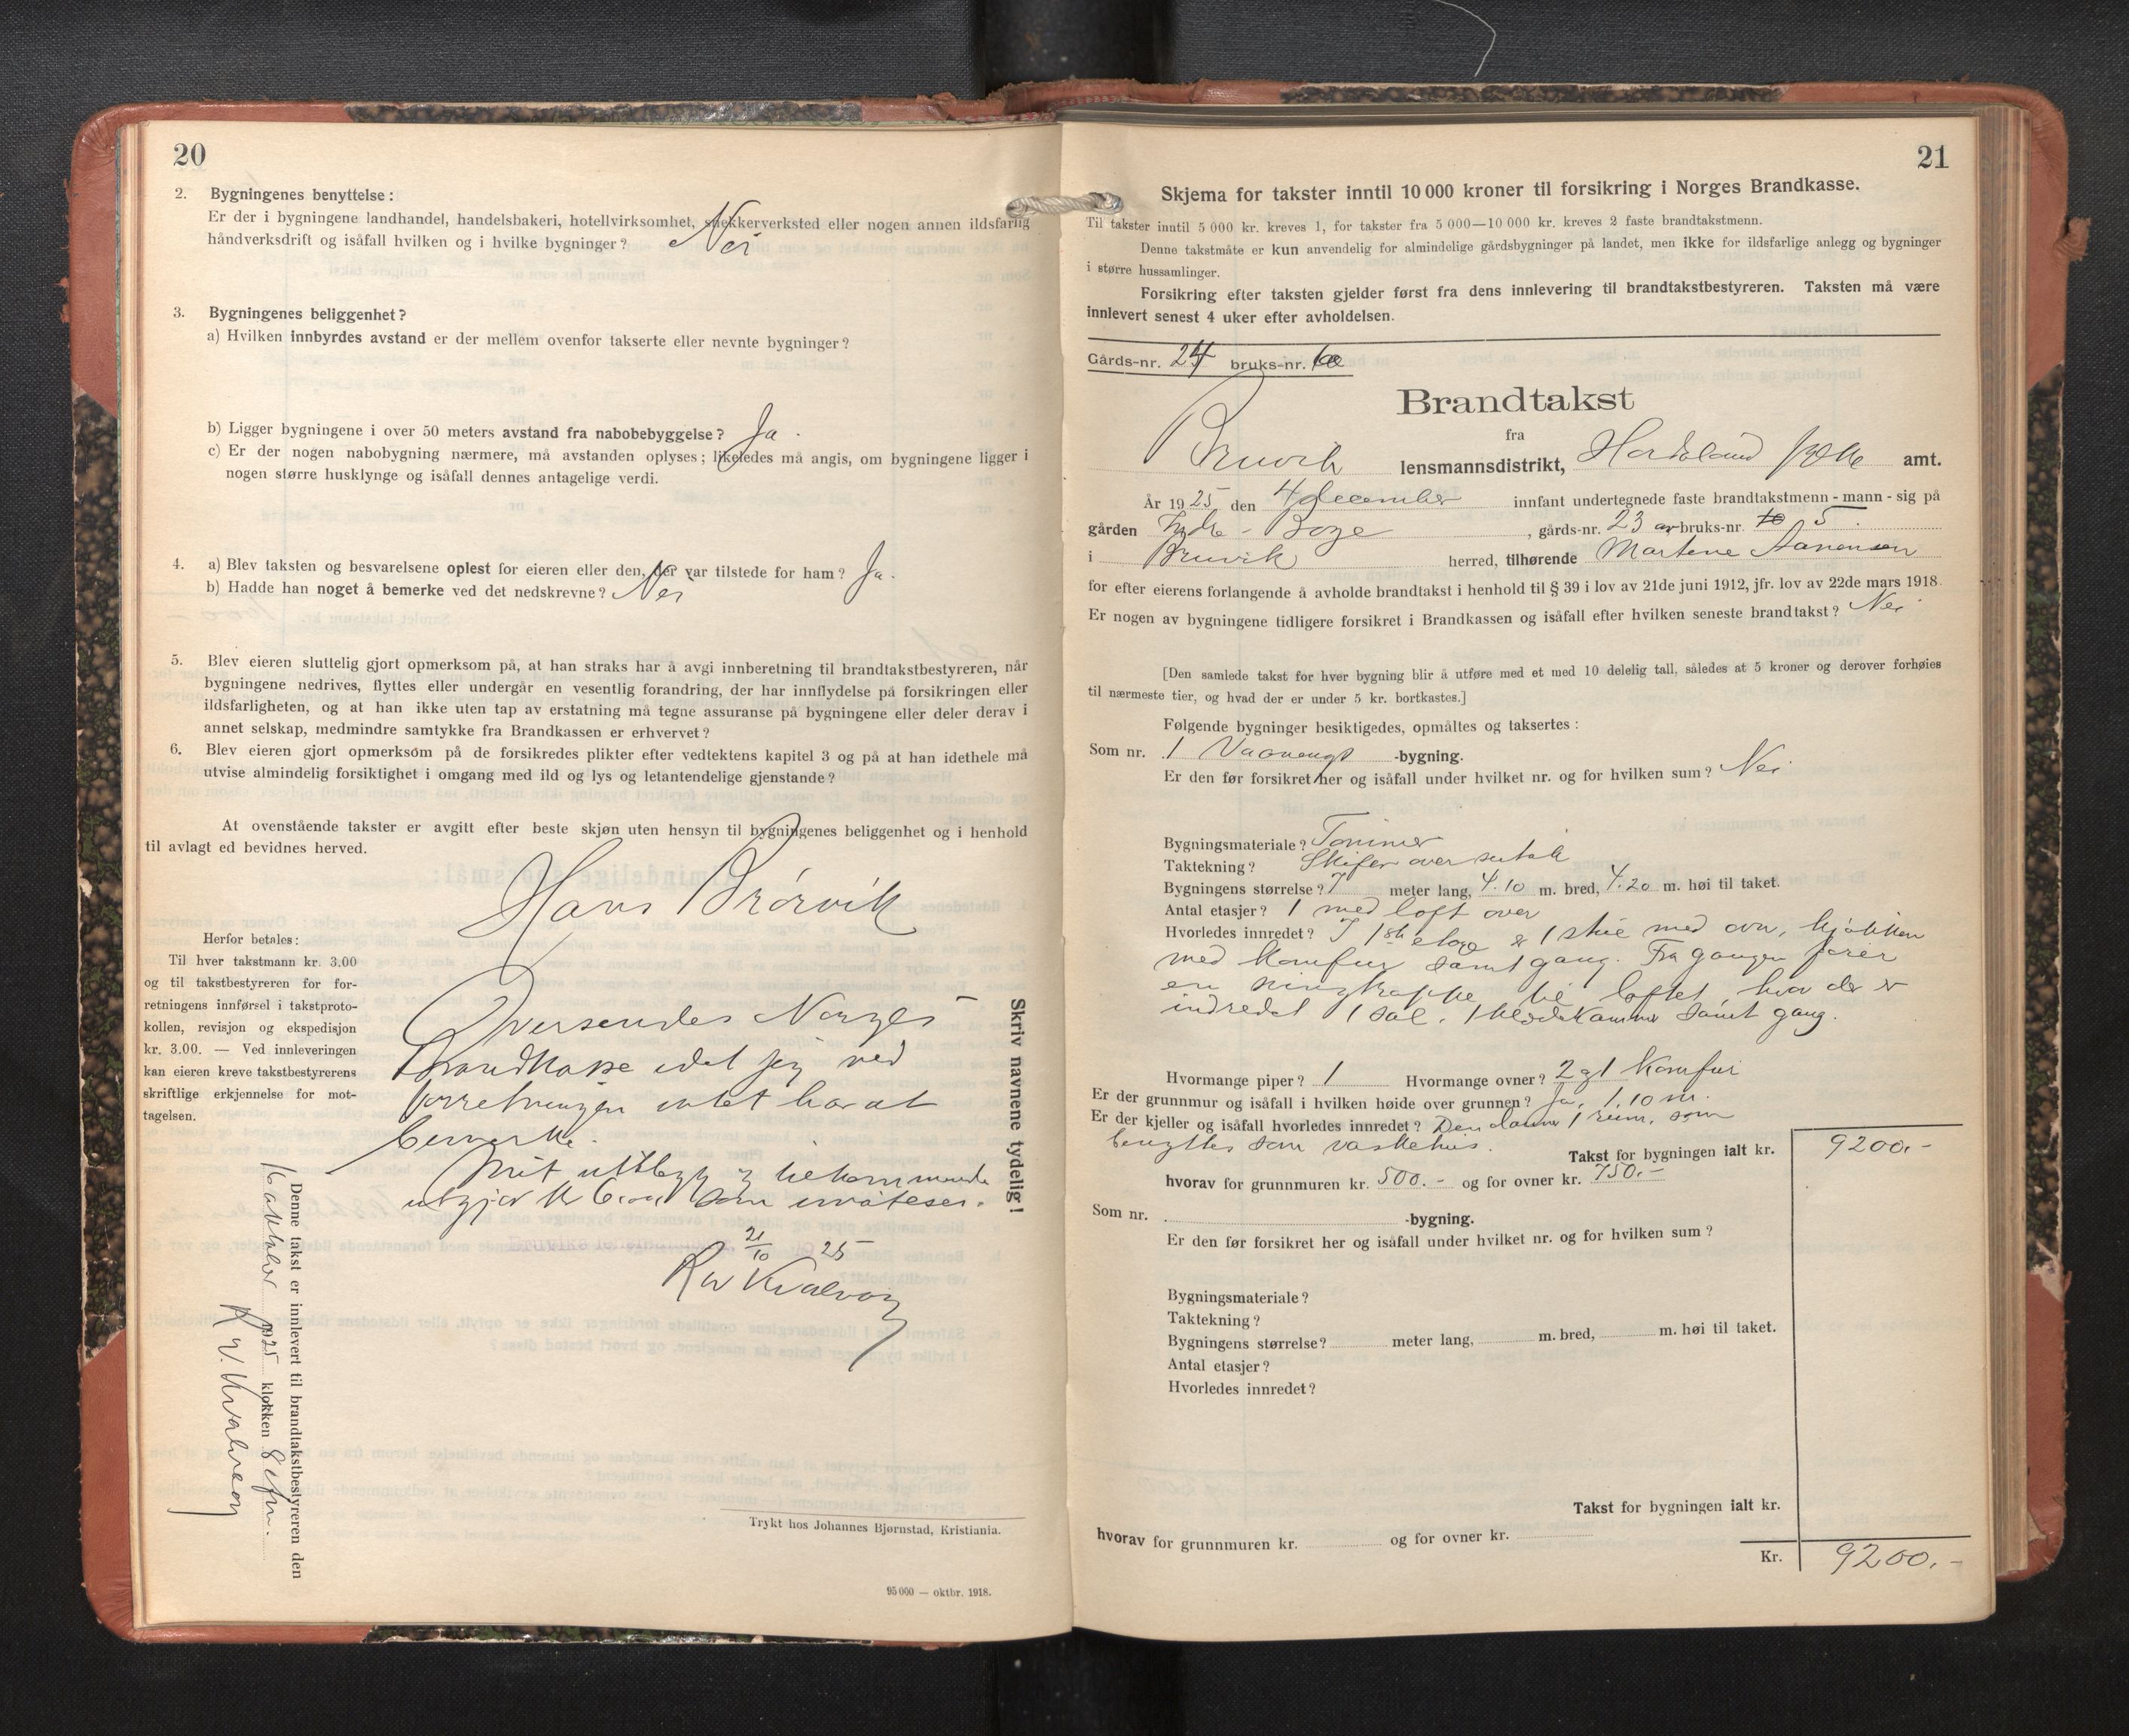 20
2. Bygningenes benyttelse:
Er der i bygningene landhandel, handelsbakeri, hotellvirksomhet, snekkerverksted eller nogen annen ildsfarlig
håndverksdrift og isåfall hvilken og i hvilke bygninger? Nei
3. Bygningenes beliggenhet?
a) Hvilken innbyrdes avstand er der mellem ovenfor takserte eller nevnte bygninger?
b) Ligger bygningene i over 50 meters avstand fra nabobebyggelse? Ja.
c) Er der nogen nabobygning nærmere, må avstanden oplyses; likeledes må angis, om bygningene ligger i
nogen større husklynge og isåfall dennes antagelige verdi.
4. a) Blev taksten og besvarelsene oplest for eieren eller den, der var tilstede for ham? Ja.
b) Hadde han noget å bemerke ved det nedskrevne? Nei
5. Blev eieren sluttelig gjort opmerksom på, at han straks har å avgi innberetning til brandtakstbestyreren, når
bygningene nedrives, flyttes eller undergår en vesentlig forandring, der har innflydelse på forsikringen eller
ildsfarligheten, og at han ikke uten tap av erstatning må tegne assuranse på bygningene eller deler derav i
annet selskap, medmindre samtykke fra Brandkassen er erhvervet?
6. Blev eieren gjort opmerksom på de forsikredes plikter efter vedtektens kapitel 3 og på at han idethele må
utvise almindelig forsiktighet i omgang med ild og lys og letantendelige gjenstande?
At ovenstående takster er avgitt efter beste skjøn uten hensyn til bygningenes beliggenhet og i henhold
til avlagt ed bevidnes herved.
Hans Brørvik
Herfor betales:
Til hver takstmann kr. 3.00
og til takstbestyreren for for-
retningens innførsel i takstproto-
kollen, revisjon og ekspedisjon
kr. 3.00. — Ved innleveringen
kan eieren kreve takstbestyrerens
skriftlige erkjennelse for mot-
tagelsen.
Oversendes Norges
Brandkasse idet jeg ved
forretningen intet har at
bemerke.
Mit utlegg
utgjør kr som
21/10 25
R W Kvalvaag
Skriv navnene tydelig!
Denne takst er innlevert til brandtakstbestyreren den
16 oktober 1925 klokken 8 efm.
R. W. Kvalvaag
Trykt hos Johannes Bjørnstad, Kristiania.
95 000 — oktbr. 1918.
21
Skjema for takster inntil 10 000 kroner til forsikring i Norges Brandkasse.
Til takster inntil 5 000 kr. kreves 1, for takster fra 5 000—10 000 kr. kreves 2 faste brandtakstmenn.
Denne takstmåte er kun anvendelig for almindelige gårdsbygninger på landet, men ikke for ildsfarlige anlegg og bygninger
i større hussamlinger.
Forsikring efter taksten gjelder først fra dens innlevering til brandtakstbestyreren. Taksten må være
innlevert senest 4 uker efter avholdelsen.
Gårds-nr. 24 bruks-nr.
Brandtakst
fra
Bruvik lensmannsdistrikt, Hordaland fylke amt.
År 1925 den 4 december innfant undertegnede faste brandtakstmenn - mann - sig på
gården Indre - Boge, gårds-nr. 23 av bruks-nr. 5.
i Bruvik herred, tilhørende Martene Aanensen
for efter eierens forlangende å avholde brandtakst i henhold til § 39 i lov av 21de juni 1912, jfr. lov av 22de mars 1918.
Er nogen av bygningene tidligere forsikret i Brandkassen og isåfall efter hvilken seneste brandtakst? Nei
[Den samlede takst for hver bygning blir å utføre med et med 10 delelig tall, således at 5 kroner og derover forhøies
til nærmeste tier, og hvad der er under 5 kr. bortkastes.]
Følgende bygninger besiktigedes, opmåltes og taksertes:
Som nr. 1 Vaanings -bygning.
Er den før forsikret her og isåfall under hvilket nr. og for hvilken sum? Nei
Bygningsmateriale? Tømmer
Taktekning? Skifer over sutak
Bygningens størrelse? 7 meter lang, 4.10 m. bred, 4.20 m. høi til taket.
Antal etasjer? 1 med loft over
Hvorledes innredet? I 1ste etage er 1 stue med ovn, kjøkken
med komfur samt gang. Fra gangen fører
en svingtrappe til loftet, hvor der er
indredet 1 sal, 1 klædekammer samt gang.
Hvormange piper? 1 Hvormange ovner? 2 og 1 Komfur
Er der grunnmur og isåfall i hvilken høide over grunnen? Ja, 1,10 m.
Er der kjeller og isåfall hvorledes innredet? Den danner 1 rum, som
benyttes som vaskehus.
Takst for bygningen ialt kr. 9200.-
hvorav for grunnmuren kr. 500.- og for ovner kr. 750.-
Som nr. -bygning.
Er den før forsikret her og isåfall under hvilket nr. og for hvilken sum?
Bygningsmateriale?
Taktekning?
Bygningens størrelse? meter lang, m. bred, m. høi til taket.
Antal etasjer?
Hvorledes innredet?
Takst for bygningen ialt kr.
hvorav for grunnmuren kr. og for ovner kr.
Kr. 9200.-